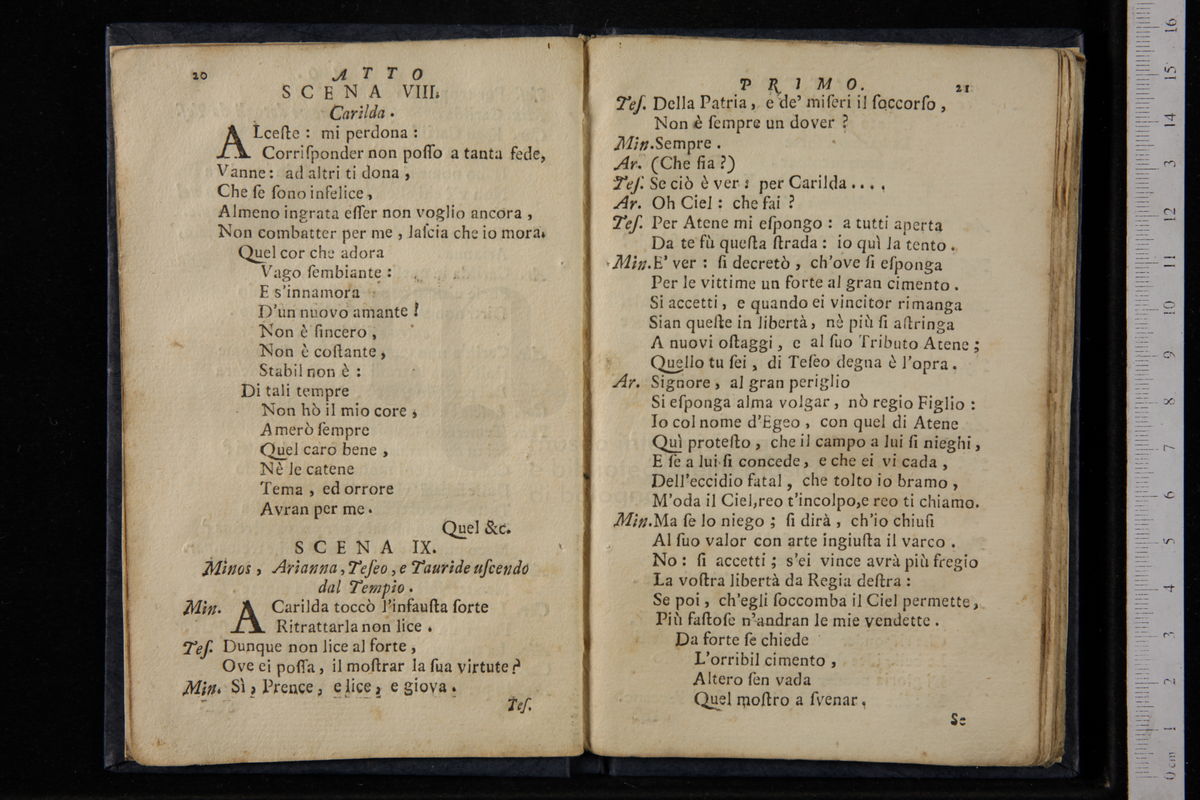 20
ATTO
SCENA VIII.
Carilda.
ALceſte : mi perdona :
Corriſponder non poſſo a tanta fede,
Vanne : ad altri ti dona ,
Che ſe ſono infelice ,
Almeno ingrata eſſer non voglio ancora ,
Non combatter per me , laſcia che io mora.
Quel cor che adora
Vago ſembiante :
E s'innamora
D'un nuovo amante !
Non è ſincero ,
Non è coſtante ,
Stabil non è :
Di tali tempre
Non hò il mio core ,
Amerò ſempre
Quel caro bene ,
Nè le catene
Tema , ed orrore
Avran per me .
Quel &c.
SCENA IX.
Minos , Arianna , Teſeo , e Tauride uſcendo
dal Tempio .
Min. A Carilda toccò l'infauſta ſorte
Ritrattarla non lice .
Teſ. Dunque non lice al forte ,
Ove ei poſſa , il moſtrar la ſua virtute ?
Min. Sì , Prence , e lice , e giova .
Teſ.
PRIMO.
21
Teſ. Della Patria , e de' miſeri il ſoccorſo ,
Non è ſempre un dover ?
Min. Sempre .
Ar. (Che ſia ?)
Teſ. Se ciò è ver : per Carilda ....
Ar. Oh Ciel : che fai ?
Teſ. Per Atene mi eſpongo : a tutti aperta
Da te fù queſta ſtrada : io quì la tento .
Min. E' ver : ſi decretò , ch'ove ſi eſponga
Per le vittime un forte al gran cimento .
Si accetti , e quando ei vincitor rimanga
Sian queſte in libertà , nè più ſi aſtringa
A nuovi oſtaggi , e al ſuo Tributo Atene ;
Quello tu ſei , di Teſeo degna è l'opra .
Ar. Signore , al gran periglio
Si eſponga alma volgar , nò regio Figlio :
Io col nome d'Egeo , con quel di Atene
Quì proteſto , che il campo a lui ſi nieghi ,
E ſe a lui ſi concede , e che ei vi cada ,
Dell'eccidio fatal , che tolto io bramo ,
M'oda il Ciel,reo t'incolpo,e reo ti chiamo.
Min. Ma ſe lo niego ; ſi dirà , ch'io chiuſi
Al ſuo valor con arte ingiuſta il varco .
No : ſi accetti ; s'ei vince avrà più fregio
La voſtra libertà da Regia deſtra :
Se poi , ch'egli ſoccomba il Ciel permette ,
Più faſtoſe n'andran le mie vendette .
Da forte ſe chiede
L'orribil cimento ,
Altero ſen vada
Quel moſtro a ſvenar ,
Se